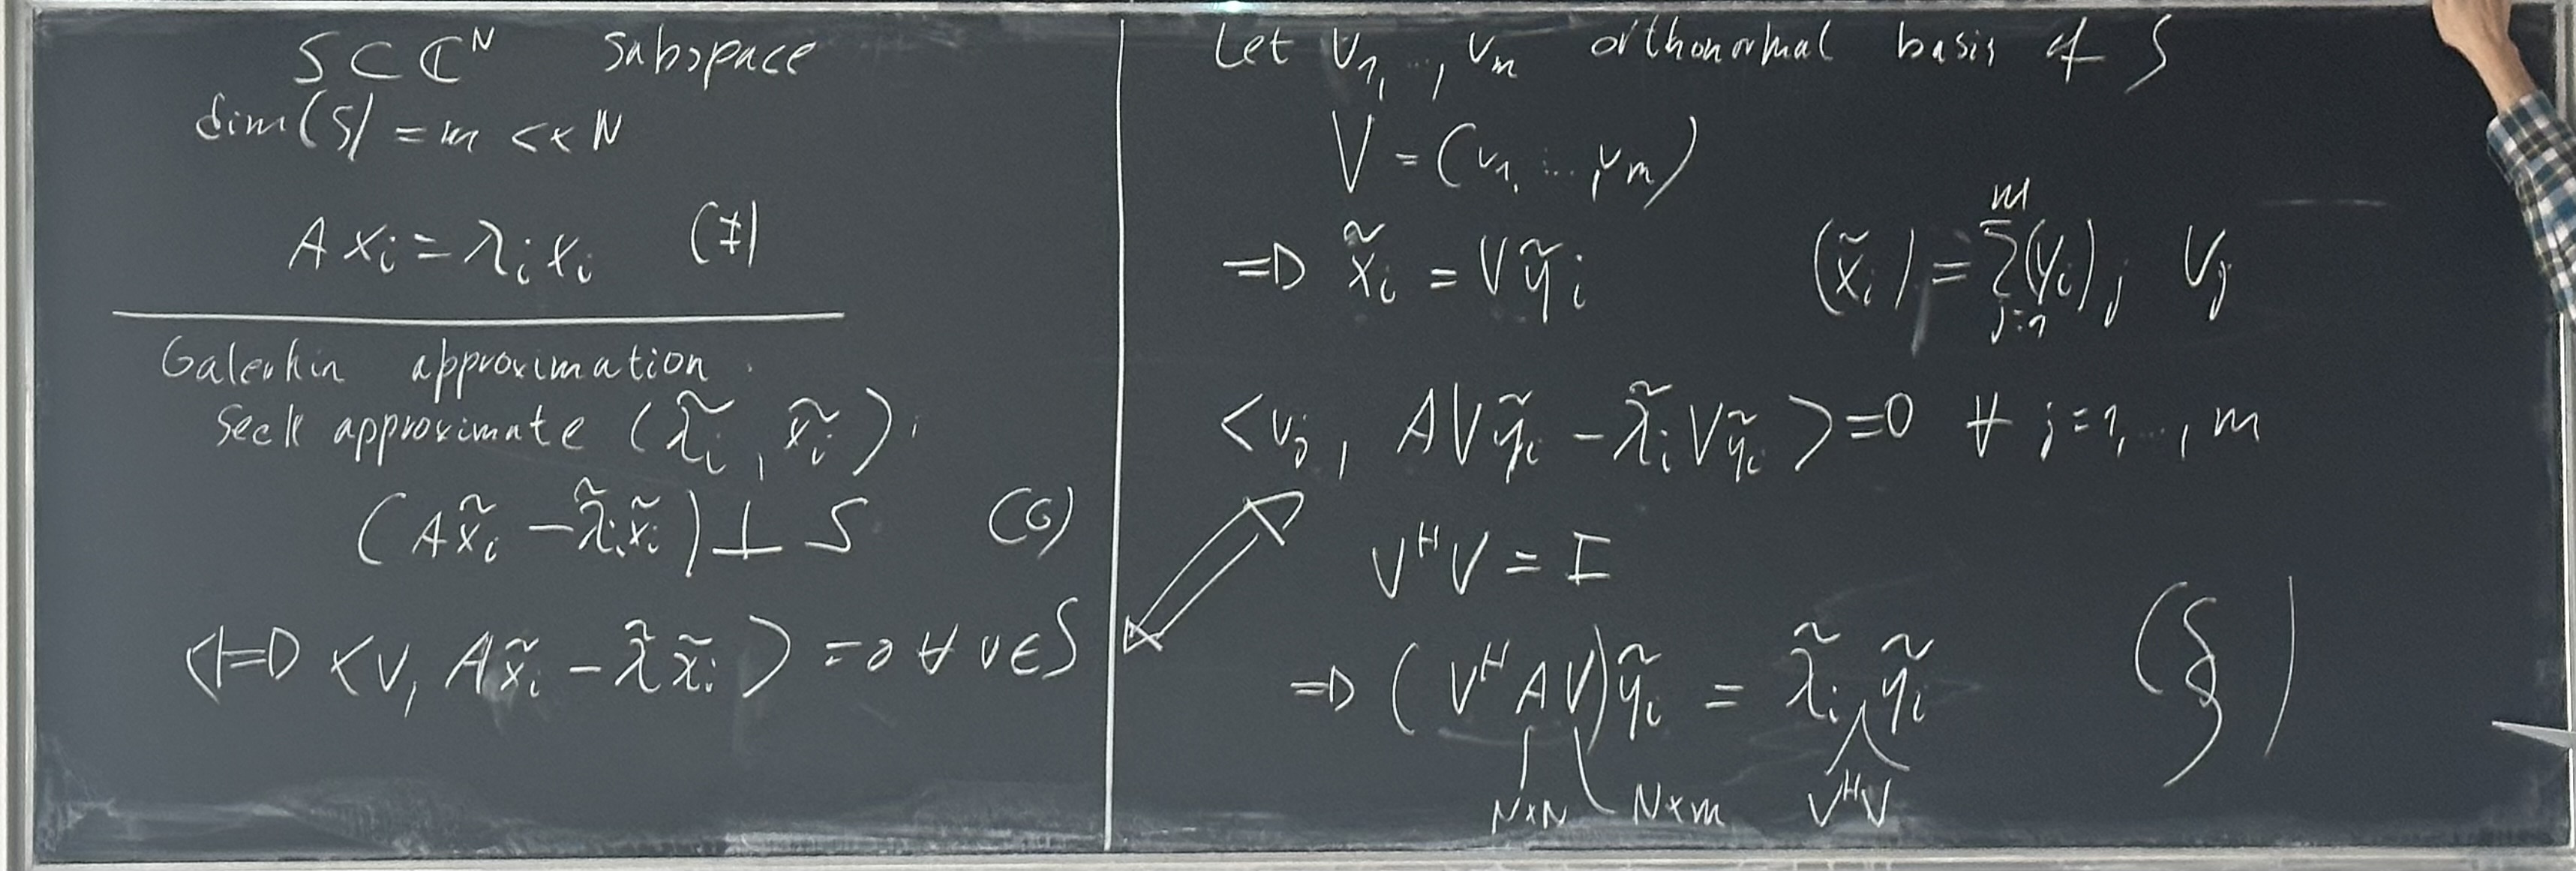 S ⊂ ℂ^N Subspace
dim(S) = m << N
A x_i = λ_i x_i (#)
Galerkin approximation.
Seek approximate (λ̃_i, x̃_i):
(A x̃_i − λ̃_i x̃_i) ⊥ S (G)
⟺ <v, A x̃_i − λ̃ x̃_i> = 0 ∀ v ∈ S
Let v_1, ..., v_m orthonormal basis of S
V = (v_1, ..., v_m)
⇒ x̃_i = V ỹ_i (x̃_i) = ∑_{j=1}^m (y_i)_j v_j
<v_j, A V ỹ_i − λ̃_i V ỹ_i> = 0 ∀ j = 1, ..., m
V^H V = I
⇒ (V^H A V) ỹ_i = λ̃_i ỹ_i (§)
N×N N×m V^H V